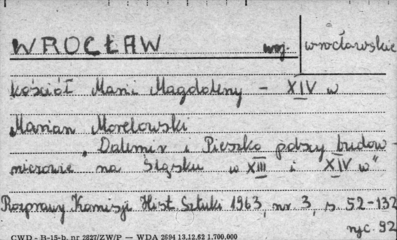 WROCŁAW woj. wrocławskie
Kościół Marii Magdaleny – XIV w
Marian Morelowski
„Dalemir i Pieszko polscy budow-
niczowie na Śląsku w XIII i XIV w"
Rozprawy Komisji Hist. Sztuki 1963, nr. 3, s. 52-132
ryc. 92
CWD - B-15-b, nr 2827/ZW/P — WDA 2694 13.12.62 1.700.000